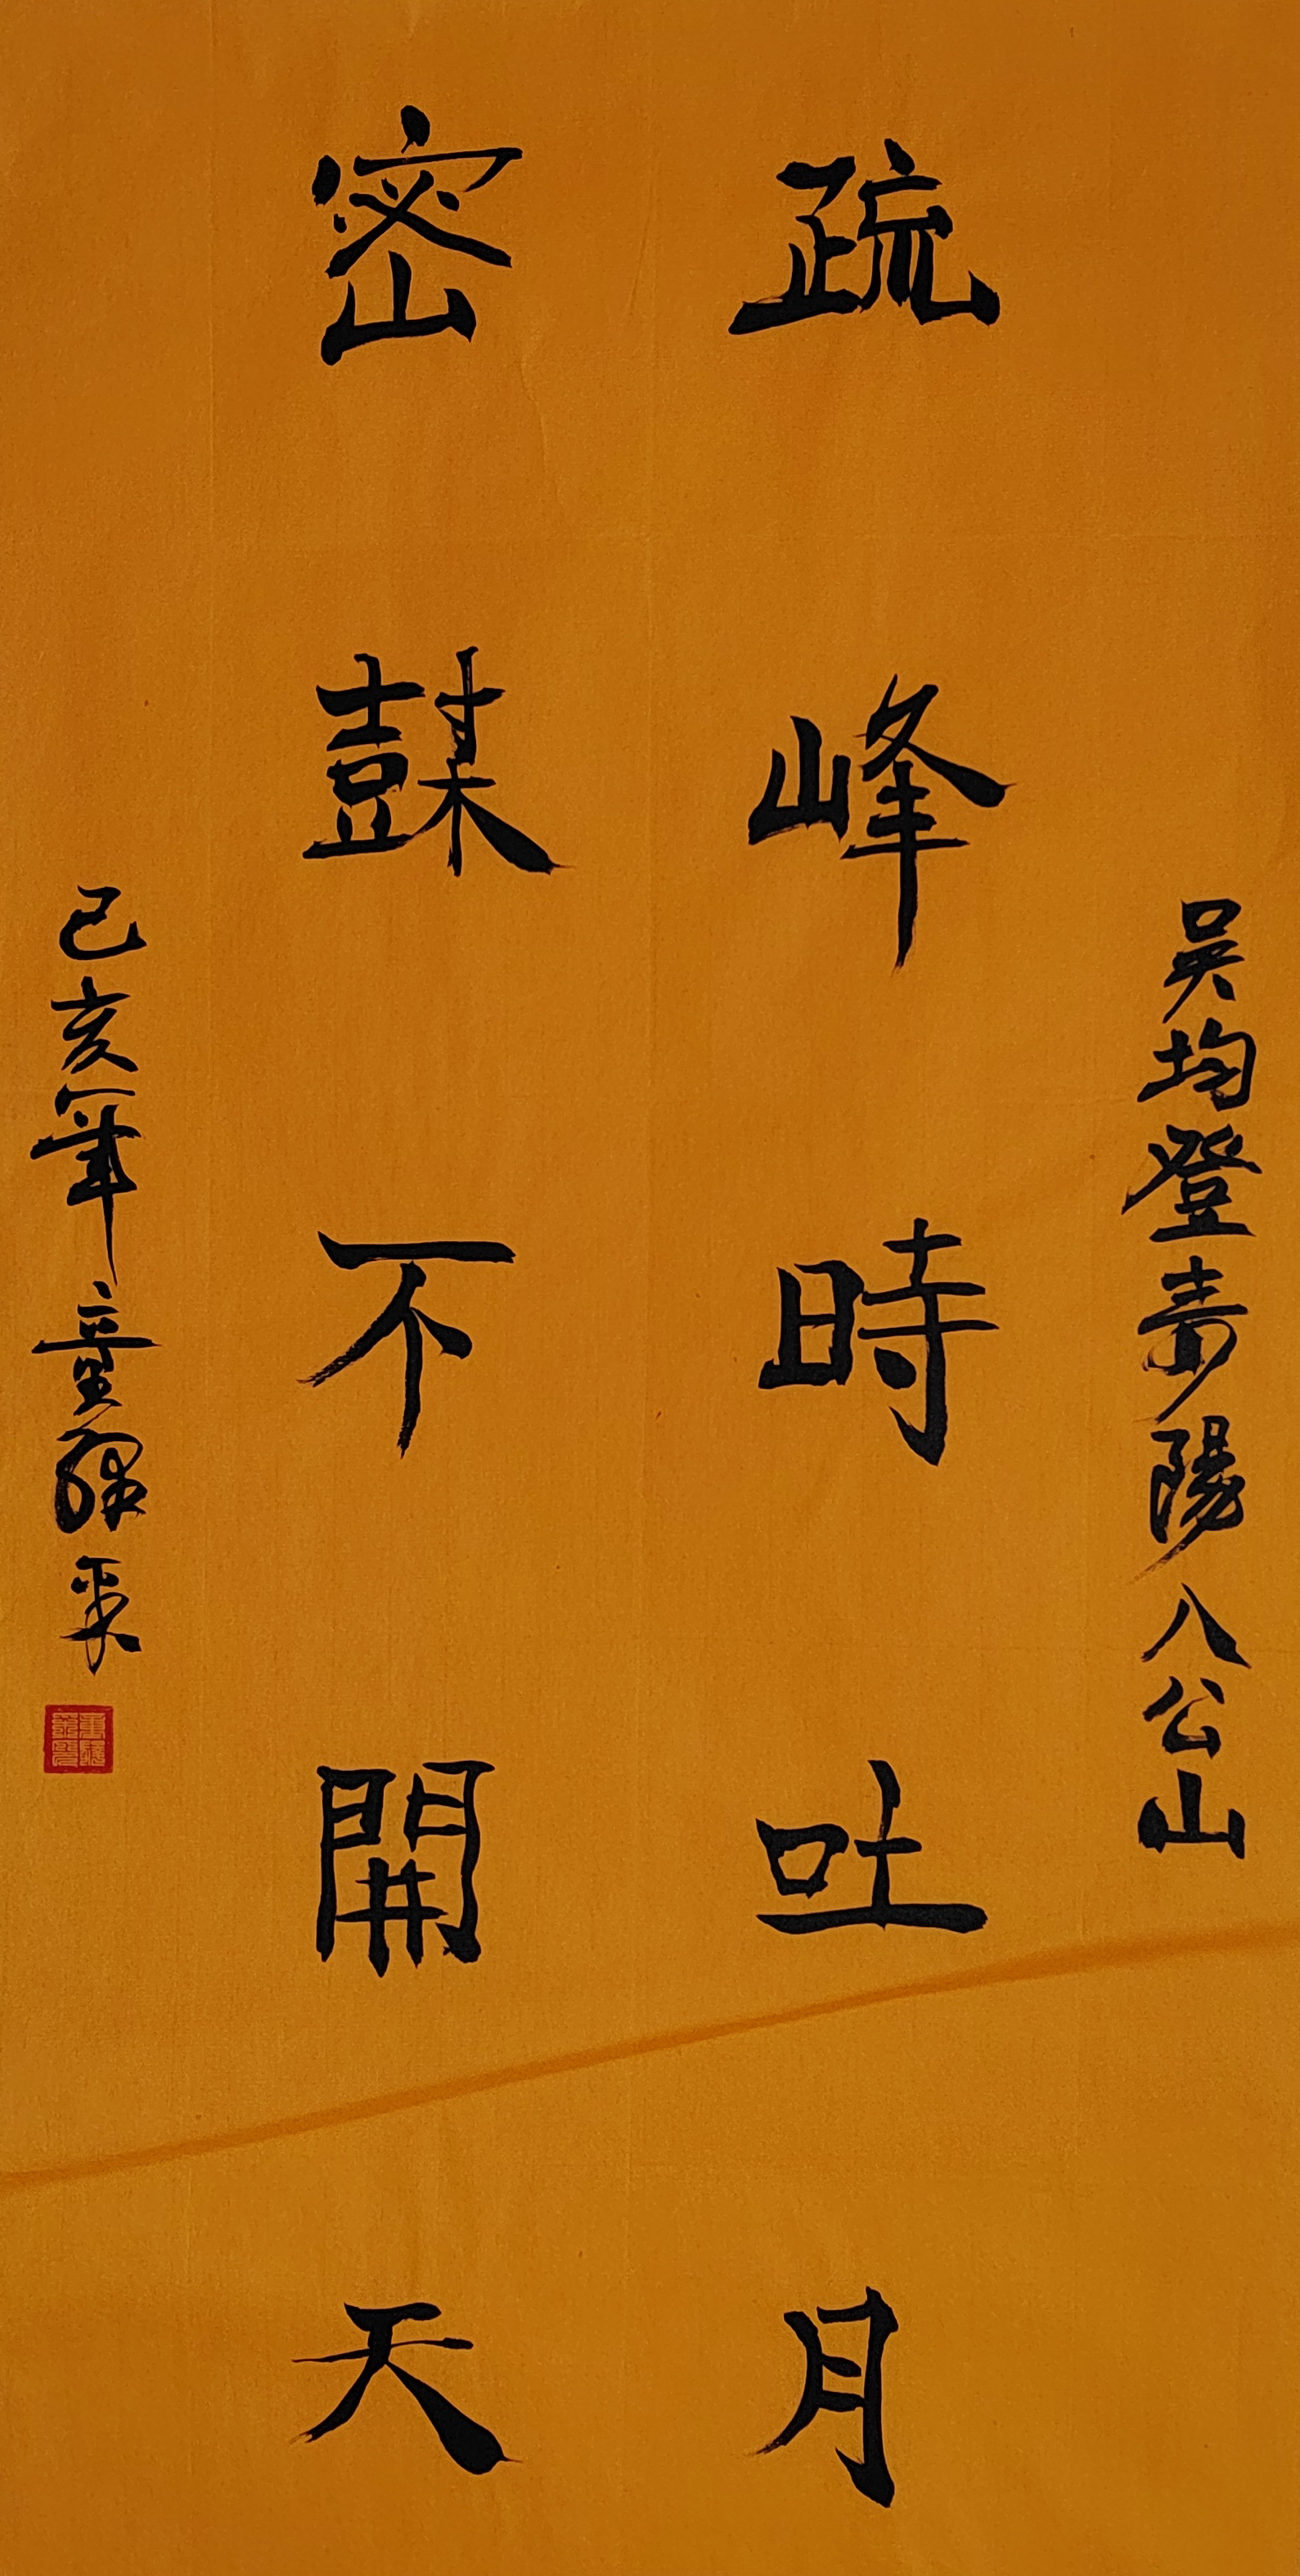 吳均登壽陽八公山
疏峰時吐月
密樹不開天
己亥年